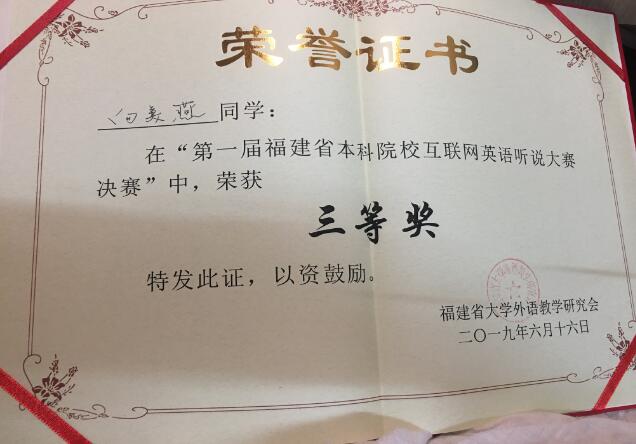 荣誉证书
向美燕同学：
在“第一届福建省本科院校互联网英语听说大赛
决赛”中，荣获
三等奖
特发此证，以资鼓励。
福建省大学外语教学研究会
二〇一九年六月十六日